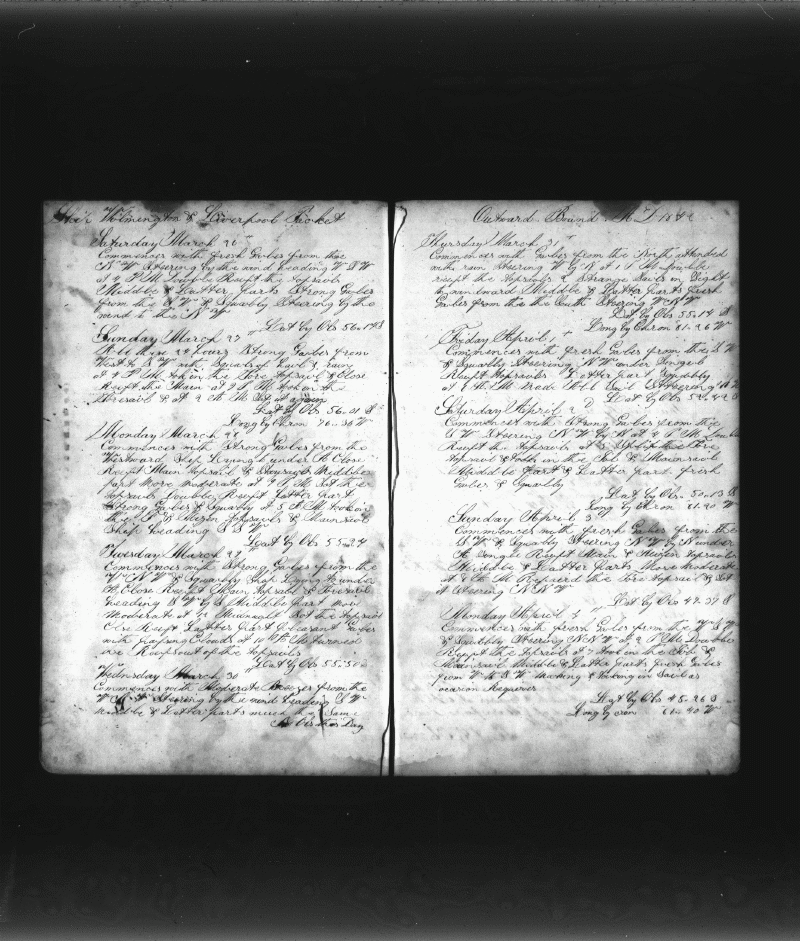 Ship Wilmington & Liverpool Packet
Saturday March 26
Commences with fresh Gales from the
N W Steering by the wind heading W S W
at 9 P M Double Reeft the topsails
Middle & Latter parts Strong Gales
from the S W & Squally Steering by the
wind to the N W
Lat by Obs 56-14 S
Sunday March 27
All these 24 hours Strong Gales from
West to S W with Squalls of hail & rain
at 4 P M took in the Fore topsail & Close
Reeft the Main at 9 P M took in the
Foresail & at 2 A M Set it again
Lat by Obs 56-31 S
Long by Chron 76-36 W
Monday March 28
Commences with Strong Gales from the
Westward Ship Laying under A Close
Reeft Main topsail & Staysails Middle
part More Moderate at 9 P M Set the
topsails Double Reeft Latter part
Strong Gales & Squally at 5 A M took in
the F & Mizen topsails & Mainsail
Ship heading S S W
Lat by Obs 55-24
Tuesday March 29
Commences with Strong Gales from the
W N W & Squally Ship Laying to under
A Close Reeft Main topsail & Foresail
heading S W by S Middle part More
Moderate at 12 Midnight Set the topsails
Close Reeft Latter part Pleasant Gales
with passing Clouds at 10 A M turned
one Reef out of the topsails
Lat by Obs 55-50 S
Wednsday March 30
Commences with Moderate Breezes from the
Steering by the wind heading S W
Middle & Latter parts much the Same
No Obs this Day
Outward Bound A D 1842
Thursday March 31
Commences with Gales from the North attended
with rain Steering W by N at 1 P M double
reeft the topsails A Strange Sail in Sight
to windward Middle & Latter parts fresh
Gales from the South Steering W N W
Lat by Obs 55-14 S
Long by Chron 81-26 W
Friday April 1
Commences with fresh Gales from the S W
& Squally Steering N W under Single
Reeft topsails Latter part Squally
at 1 A M made All Sail Steering
Lat by Obs
Saturday April 2
Commences with Strong Gales from the
S W Steering N W by N at 2 P M Double
Reeft the topsails at 8 Split the Fore
topsail & took in the Jib & Mainsail
Middle part & Latter part fresh
Gales & Squally
Lat by Obs 50-13 S
Long by Chron 81-20 W
Sunday April 3
Commences with fresh Gales from the
S W & Squally Steering N W by N under
A Single Reeft Main & Mizen topsails
Middle & Latter parts More Moderate
at 8 A M Repaired the Fore topsail & Set
it Steering N N W
Lat by Obs 47-37 S
Monday April 4
Commences with fresh Gales from the W S W
& Squally Steering N N W at 2 P M Double
Reeft the topsails at 7 took in the Jib &
Mainsail Middle & Latter parts fresh Gales
from W S W Making & taking in Sail as
ocasion Requires
Lat by Obs 45-26 S
Long by cron 81-40 W